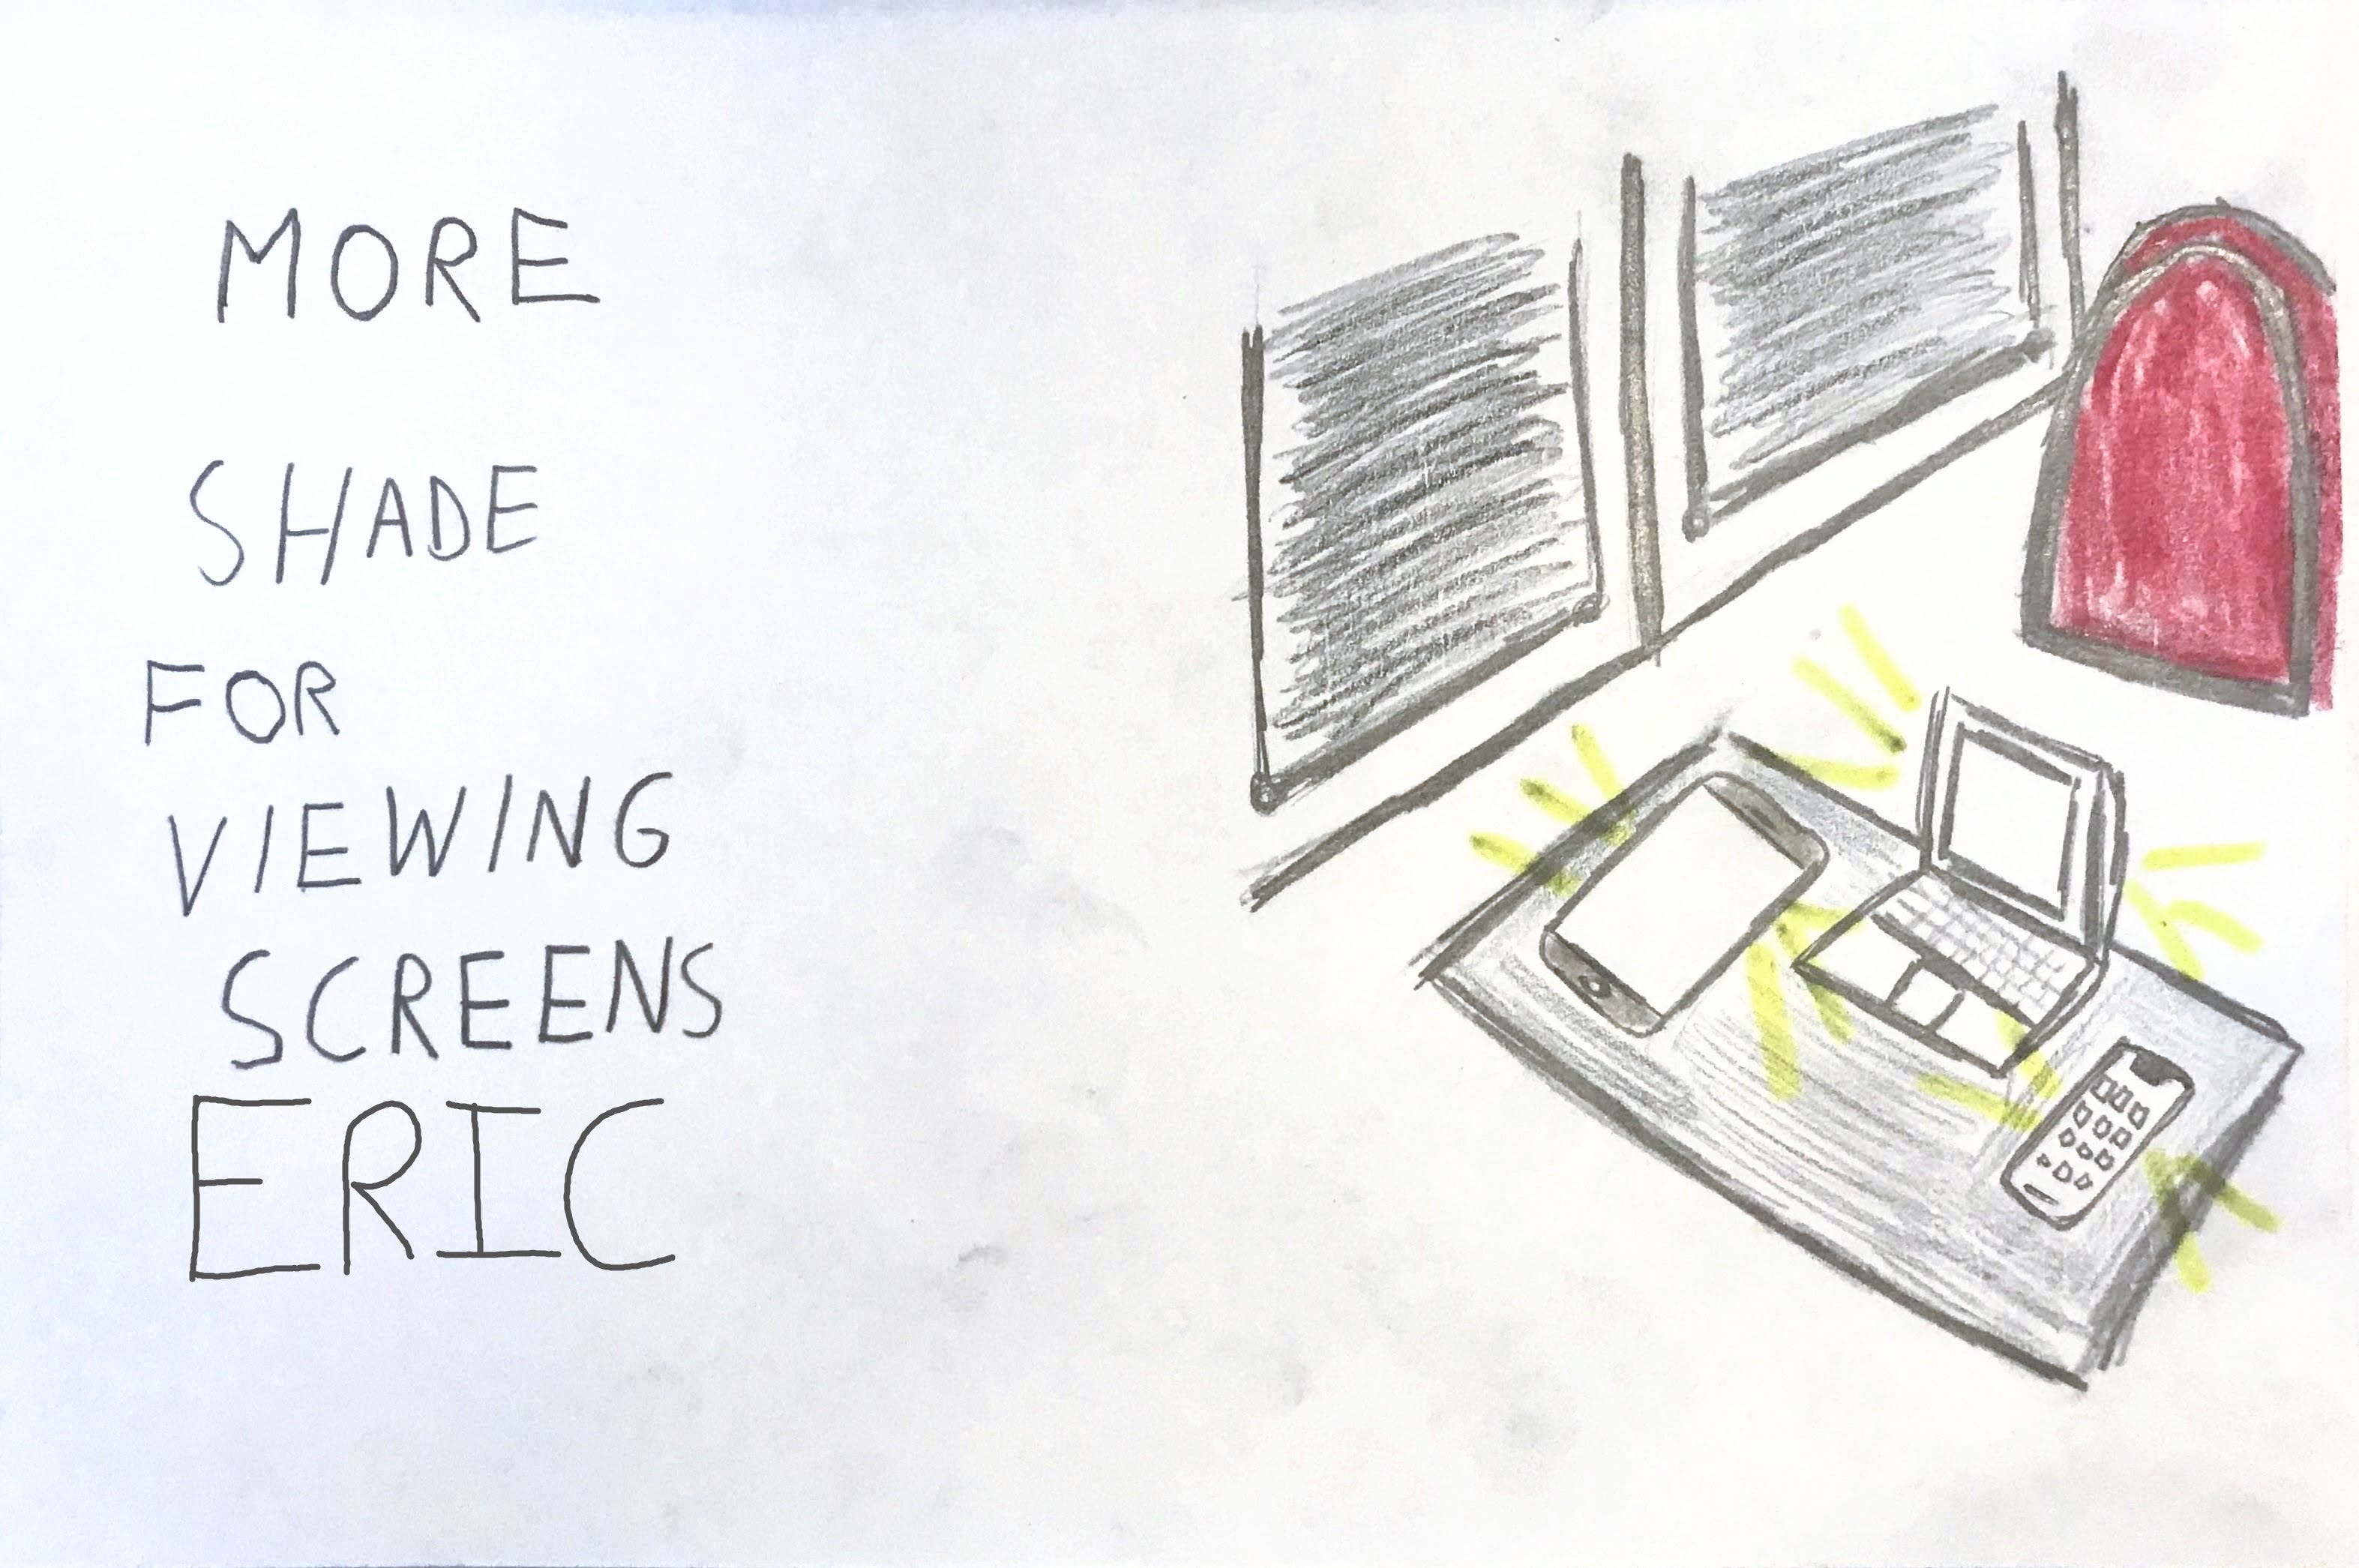 MORE
SHADE
FOR
VIEWING
SCREENS
ERIC